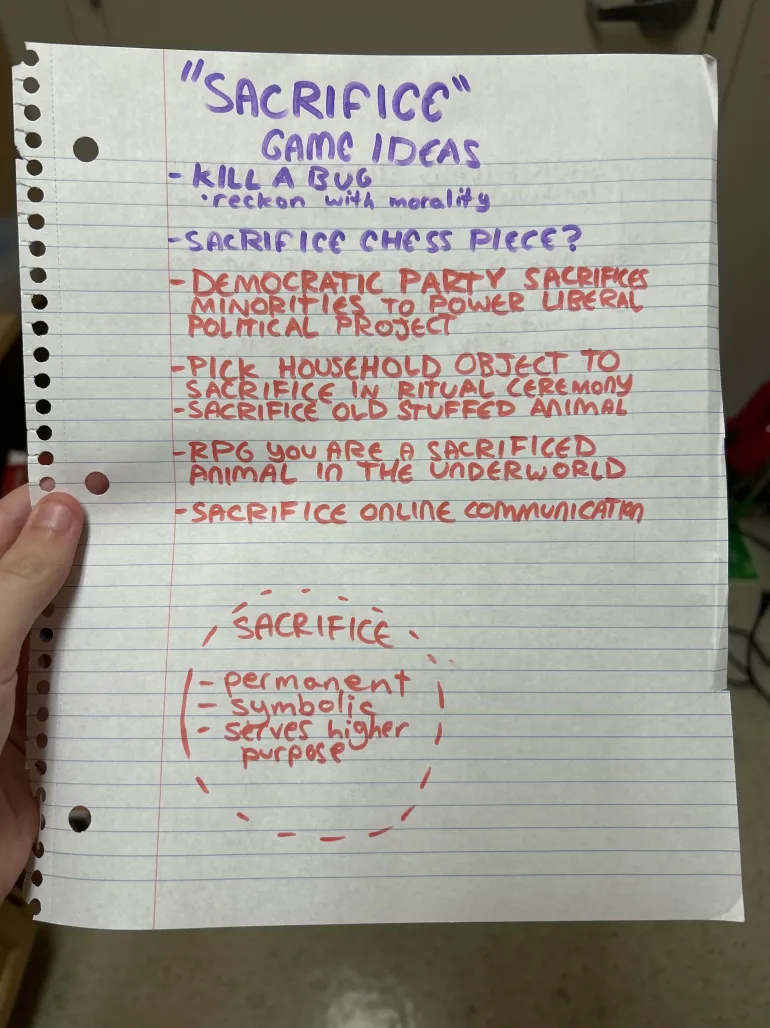 "SACRIFICE"
GAME IDEAS
- KILL A BUG
• reckon with morality
- SACRIFICE CHESS PIECE?
- DEMOCRATIC PARTY SACRIFICES
MINORITIES TO POWER LIBERAL
POLITICAL PROJECT
- PICK HOUSEHOLD OBJECT TO
SACRIFICE IN RITUAL CEREMONY
- SACRIFICE OLD STUFFED ANIMAL
- RPG YOU ARE A SACRIFICED
ANIMAL IN THE UNDERWORLD
- SACRIFICE ONLINE COMMUNICATION
SACRIFICE
- permanent
- symbolic
- serves higher
purpose